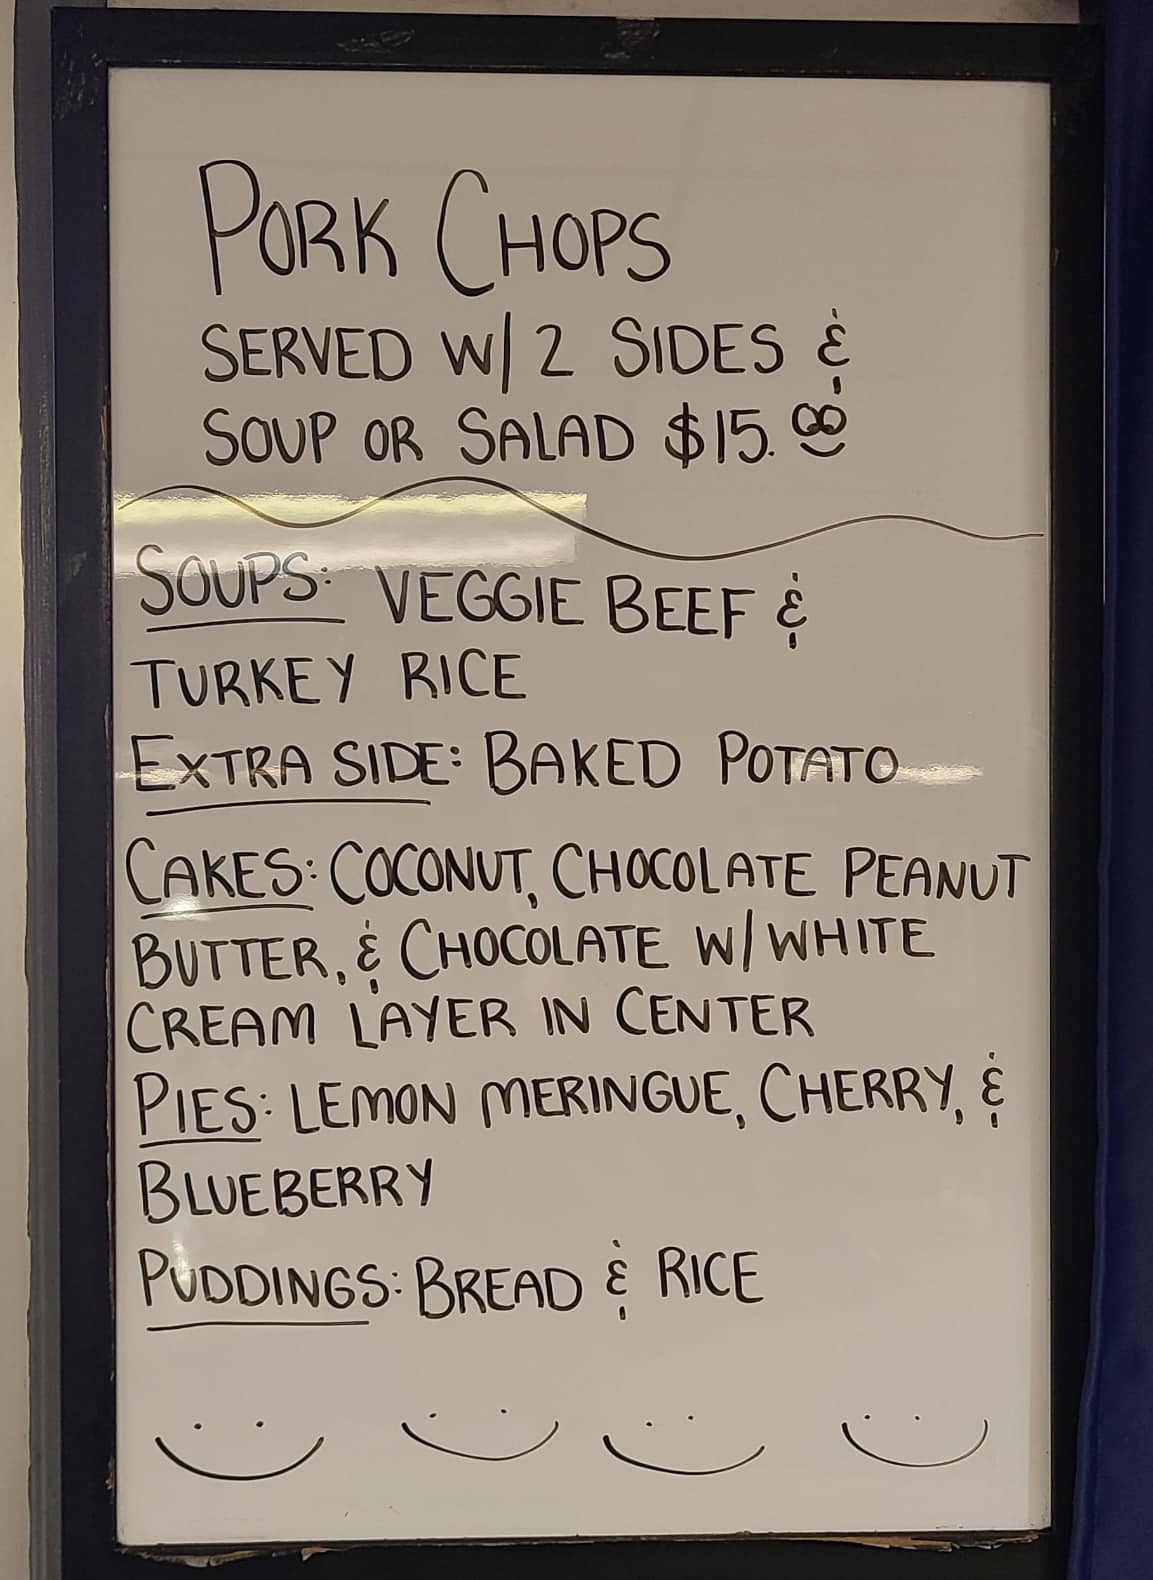 PORK CHOPS
SERVED W/ 2 SIDES &
SOUP OR SALAD $15.00
SOUPS: VEGGIE BEEF &
TURKEY RICE
EXTRA SIDE: BAKED POTATO
CAKES: COCONUT, CHOCOLATE PEANUT
BUTTER, & CHOCOLATE W/ WHITE
CREAM LAYER IN CENTER
PIES: LEMON MERINGUE, CHERRY, &
BLUEBERRY
PUDDINGS: BREAD & RICE